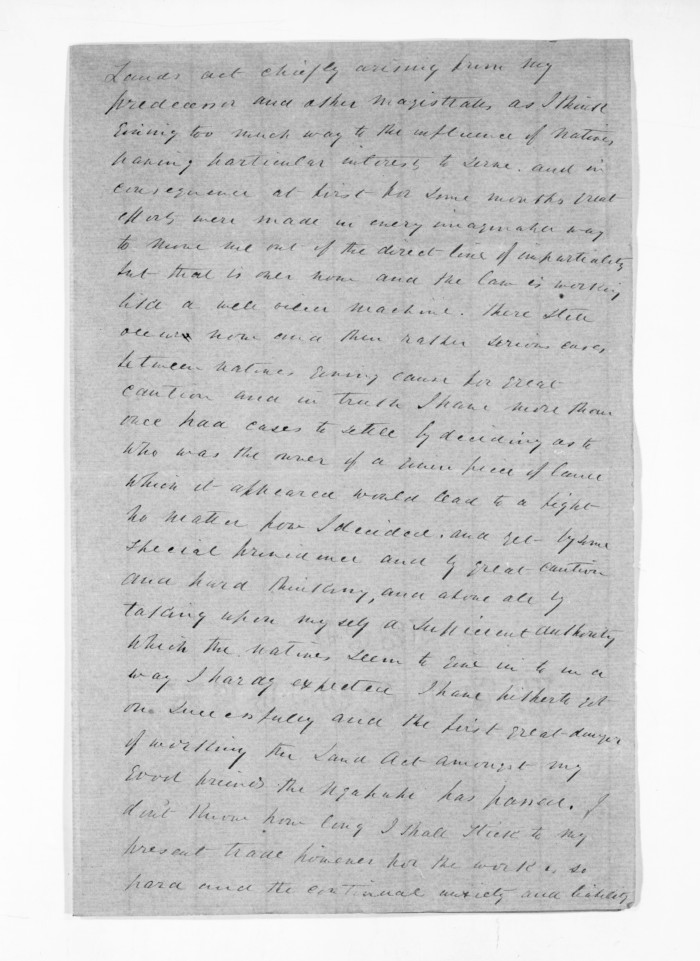 Lands act chiefly arising from my
predecessor and other magistrates as I think
Giving too much way to the influence of Natives
having particular interests to serve. and in
consequence at first for some months great
efforts were made in every imaginable way
to move me out of the direct line of impartiality
but that is over now and the law is working
like a well oiled machine. there still
occurs now and then rather serious cases
between natives Giving cause for Great
caution and in truth I have more than
once had cases to settle by deciding as to
who was the owner of a Given piece of land
which it appeared would lead to a fight
no matter how I decided. and yet by some
special providence and by great caution
and hard thinking, and above all by
taking upon myself a sufficient authority
which the natives seem to Give in to in a
way I hardly expected I have hitherto got
on successfully and the first great danger
of working the Land Act amongst my
Good friends the Ngapuhi has passed. I
don't Know how long I shall stick to my
present trade however for the work is so
hard and the continual anxiety and liability